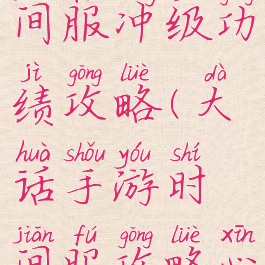 间服冲级功
jì gōng lüè dà
绩攻略(大
huà shǒu yóu shí
话手游时
jiān fú gōng lüè xīn
间服攻略心